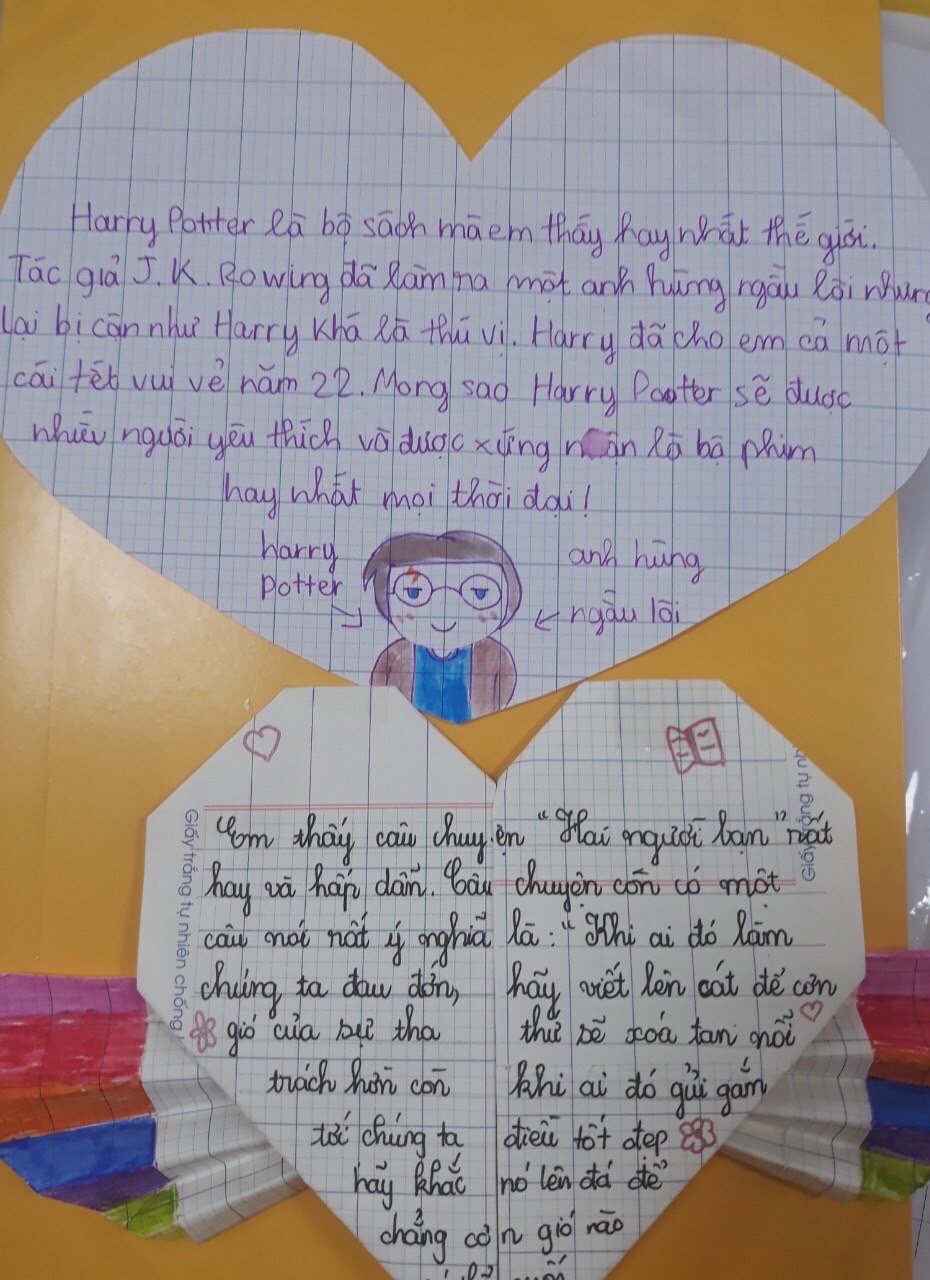 Harry Potter là bộ sách mà em thấy hay nhất thế giới.
Tác giả J.K. Rowing đã làm na một anh hùng ngầu lòi nhưng
lại bị cận như Harry khá là thú vị. Harry đã cho em cả một
cái tết vui vẻ năm 22. Mong sao Harry Pootter sẽ được
nhiều người yêu thích và được xứng nận là bộ phim
hay nhất mọi thời đại!
harry
potter
anh hùng
ngầu lòi
Em thấy câu chuyện "Hai người bạn" rất
hay và hấp dẫn. Câu chuyện còn có một
câu nói rất ý nghĩa là: "Khi ai đó làm
chúng ta đau đớn, hãy viết lên cát để cơn
gió của sự tha thứ sẽ xoá tan nỗi
trách hờn còn khi ai đó gửi gắm
tới chúng ta điều tốt đẹp
hãy khắc nó lên đá để
chẳng cơn gió nào
Giấy trắng tự nhiên chống
Giấy trắng tự nh